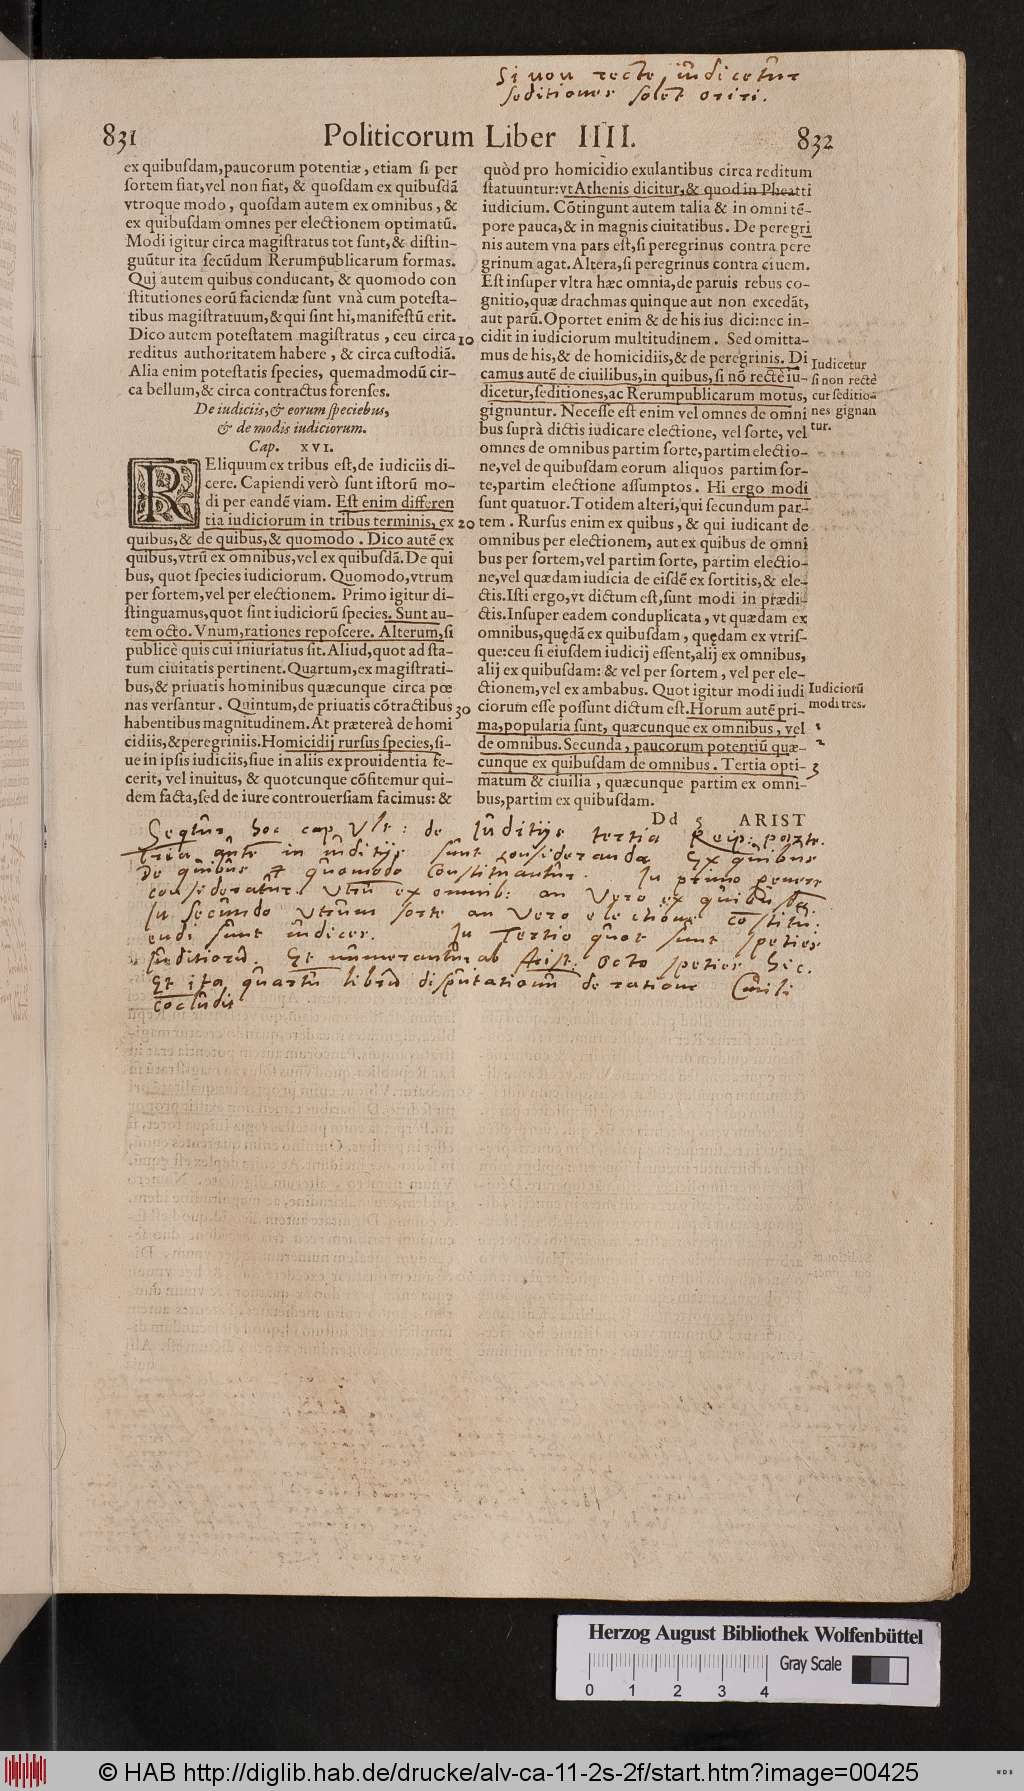 Si non recte iudicetur
seditiones solet oriri.
831
Politicorum Liber IIII.
832
ex quibuſdam,paucorum potentiæ, etiam ſi per
ſortem fiat,vel non fiat, & quoſdam ex quibuſdã
vtroque modo, quoſdam autem ex omnibus, &
ex quibuſdam omnes per electionem optimatũ.
Modi igitur circa magiſtratus tot ſunt,& diſtin-
guũtur ita ſecũdum Rerumpublicarum formas.
Qui autem quibus conducant, & quomodo con
ſtitutiones eorũ faciendæ ſunt vnà cum poteſta-
tibus magiſtratuum,& qui ſint hi,manifeſtũ erit.
Dico autem poteſtatem magiſtratus, ceu circa 10
reditus authoritatem habere, & circa cuſtodiã.
Alia enim poteſtatis ſpecies, quemadmodũ cir-
ca bellum,& circa contractus forenſes.
De iudiciis,& eorum ſpeciebus,
& de modis iudiciorum.
Cap. XVI.
REliquum ex tribus eſt,de iudiciis di-
cere. Capiendi verò ſunt iſtorũ mo-
di per eandẽ viam. Eſt enim differen
tia iudiciorum in tribus terminis, ex 20
quibus,& de quibus,& quomodo. Dico autẽ ex
quibus,vtrũ ex omnibus,vel ex quibuſdã.De qui
bus, quot ſpecies iudiciorum. Quomodo,vtrum
per ſortem,vel per electionem. Primo igitur di-
ſtinguamus,quot ſint iudiciorũ ſpecies. Sunt au-
tem octo. Vnum,rationes repoſcere. Alterum,ſi
publicè quis cui iniuriatus ſit.Aliud,quot ad ſta-
tum ciuitatis pertinent.Quartum,ex magiſtrati-
bus,& priuatis hominibus quæcunque circa pœ
nas verſantur. Quintum,de priuatis cõtractibus 30
habentibus magnitudinem.At præterea de homi
cidiis,&peregriniis.Homicidij rurſus ſpecies,ſi-
ue in ipſis iudiciis,ſiue in aliis ex prouidentia fe-
cerit, vel inuitus, & quotcunque cõfitemur qui-
dem facta,ſed de iure controuerſiam facimus: &
quòd pro homicidio exulantibus circa reditum
ſtatuuntur:vt Athenis dicitur,& quod in Pheatti
iudicium. Cõtingunt autem talia & in omni tẽ-
pore pauca,& in magnis ciuitatibus. De peregri
nis autem vna pars eſt,ſi peregrinus contra pere
grinum agat.Altera,ſi peregrinus contra ciuem.
Eſt inſuper vltra hæc omnia,de paruis rebus co-
gnitio,quæ drachmas quinque aut non excedãt,
aut parũ.Oportet enim & de his ius dici:nec in-
cidit in iudiciorum multitudinem. Sed omitta-
mus de his,& de homicidiis,& de peregrinis. Di
camus autẽ de ciuilibus,in quibus,ſi nõ rectè iu-
dicetur,ſeditiones,ac Rerumpublicarum motus,
gignuntur. Neceſſe eſt enim vel omnes de omni
bus ſuprà dictis iudicare electione, vel ſorte, vel
omnes de omnibus partim ſorte,partim electio-
ne,vel de quibuſdam eorum aliquos partim ſor-
te,partim electione aſſumptos. Hi ergo modi
ſunt quatuor.Totidem alteri,qui ſecundum par-
tem. Rurſus enim ex quibus, & qui iudicant de
omnibus per electionem, aut ex quibus de omni
bus per ſortem,vel partim ſorte, partim electio-
ne,vel quædam iudicia de eiſdẽ ex ſortitis,& ele-
ctis.Iſti ergo,vt dictum eſt,ſunt modi in prædi-
ctis.Inſuper eadem conduplicata, vt quædam ex
omnibus,quędã ex quibuſdam, quędam ex vtriſ-
que:ceu ſi eiuſdem iudicij eſſent,alij ex omnibus,
alij ex quibuſdam: & vel per ſortem, vel per ele-
ctionem,vel ex ambabus. Quot igitur modi iudi
ciorum eſſe poſſunt dictum eſt.Horum autẽ pri-
ma,popularia ſunt, quæcunque ex omnibus, vel
de omnibus.Secunda, paucorum potentiũ quæ-
cunque ex quibuſdam de omnibus. Tertia opti-
matum & ciuilia, quæcunque partim ex omni-
bus,partim ex quibuſdam.
Iudicetur
ſi non rectè
cur ſeditio-
nes gignan
tur.
Iudiciorũ
modi tres.
1
2
3
Dd 5 ARIST
Seqtur hoc cap. Vlt: de Iuditijs tertia Reip: parte.
Tria aute in iuditijs sunt consideranda Ex quibus
De quibus et quomodo constituantur. In primo genere
consideratur. Vtrũ ex omnib: an Vero ex quibusd.
In secundo Vtrum sorte an Vero electione costitu:
endi sunt iudices. In Tertio quot sunt species
Iuditiorũ. Et numerantur ab Arist. octo species hic.
Et ita quartũ librũ disputationũ de ratione Ciuili
cocludit
Herzog August Bibliothek Wolfenbüttel
Gray Scale
0 1 2 3 4
© HAB http://diglib.hab.de/drucke/alv-ca-11-2s-2f/start.htm?image=00425